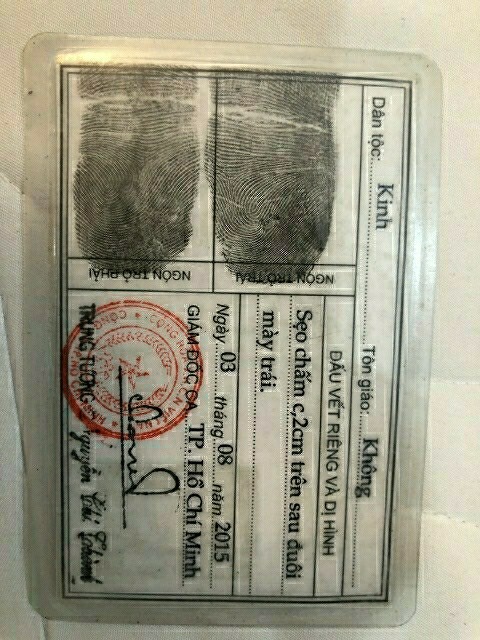 Dân tộc: Kinh Tôn giáo: Không
DẤU VẾT RIÊNG VÀ DỊ HÌNH
NGÓN TRỎ TRÁI
Sẹo chấm c,2cm trên sau đuôi
mày trái.
NGÓN TRỎ PHẢI
Ngày 03 tháng 08 năm 2015
GIÁM ĐỐC CA. TP. Hồ Chí Minh
TRUNG TƯỚNG Nguyễn Chí Thành